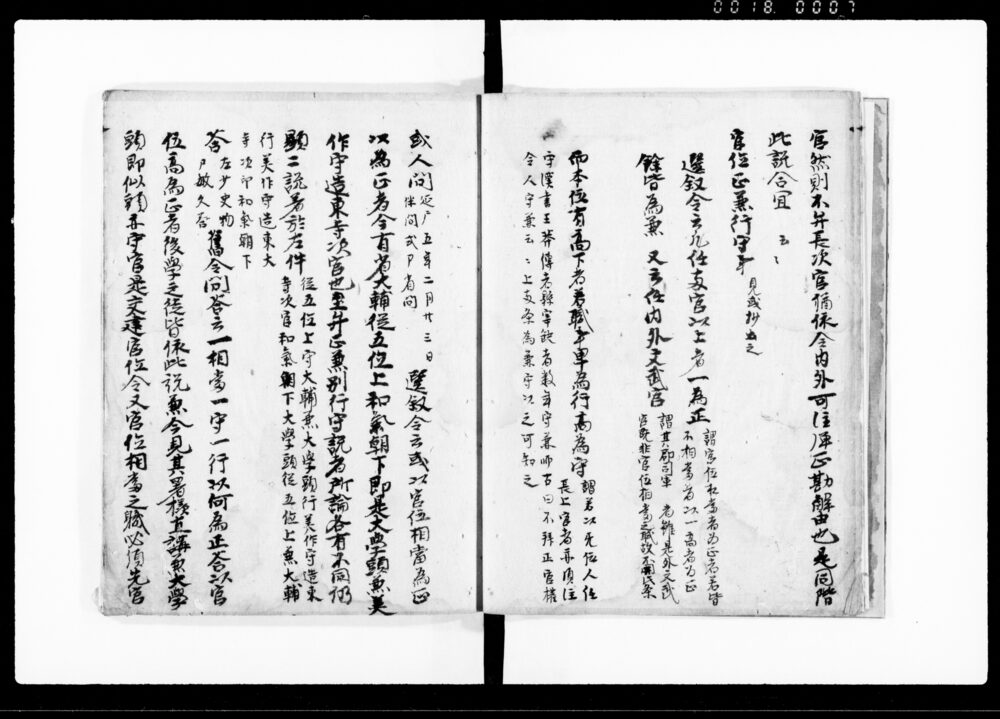 0018 0007
官然則不弁長次官猶依令内外可注歴正勘解由也是同階
此説合宜 云々
官位正兼行守事 見或抄出之
選叙令云凡任両官以上者一為正 謂官位相当者為正者若皆
不相当者以一高者為正
餘皆為兼 又云任内外文武官 謂其郡司軍 者雖是外文武
官既非官位相当之職故
而本位有高下者若職事卑為行高為守 謂若以无位人任
長上官者亦須注
守漢書王莽傳云縣宰缺者数年守兼師古曰不拝正官権
令人守兼云々上両条為兼守以之可知之
或人問 延戸五年二月廿三日
伴問式戸省問 選叙令云或以官位相当為正
以為正者今有省大輔従五位上和氣朝下即是大学頭兼美
作守造東寺次官也至弁正兼別行守説者所論各有不同仍
顕二説着於左件 従五位上守大輔兼大学頭行美作守造東
寺次官和氣朝下大学頭従五位上兼大輔
行美作守造東大
寺次官和氣朝下
答 左少史物
ア敏久答 舊令問答云一相当一守一行以何為正答以官
位高為正者後学之徒皆依此説兼今見其署様直講兼大学
頭即似領弁守官是文違官位令又官位相当之職必須先官